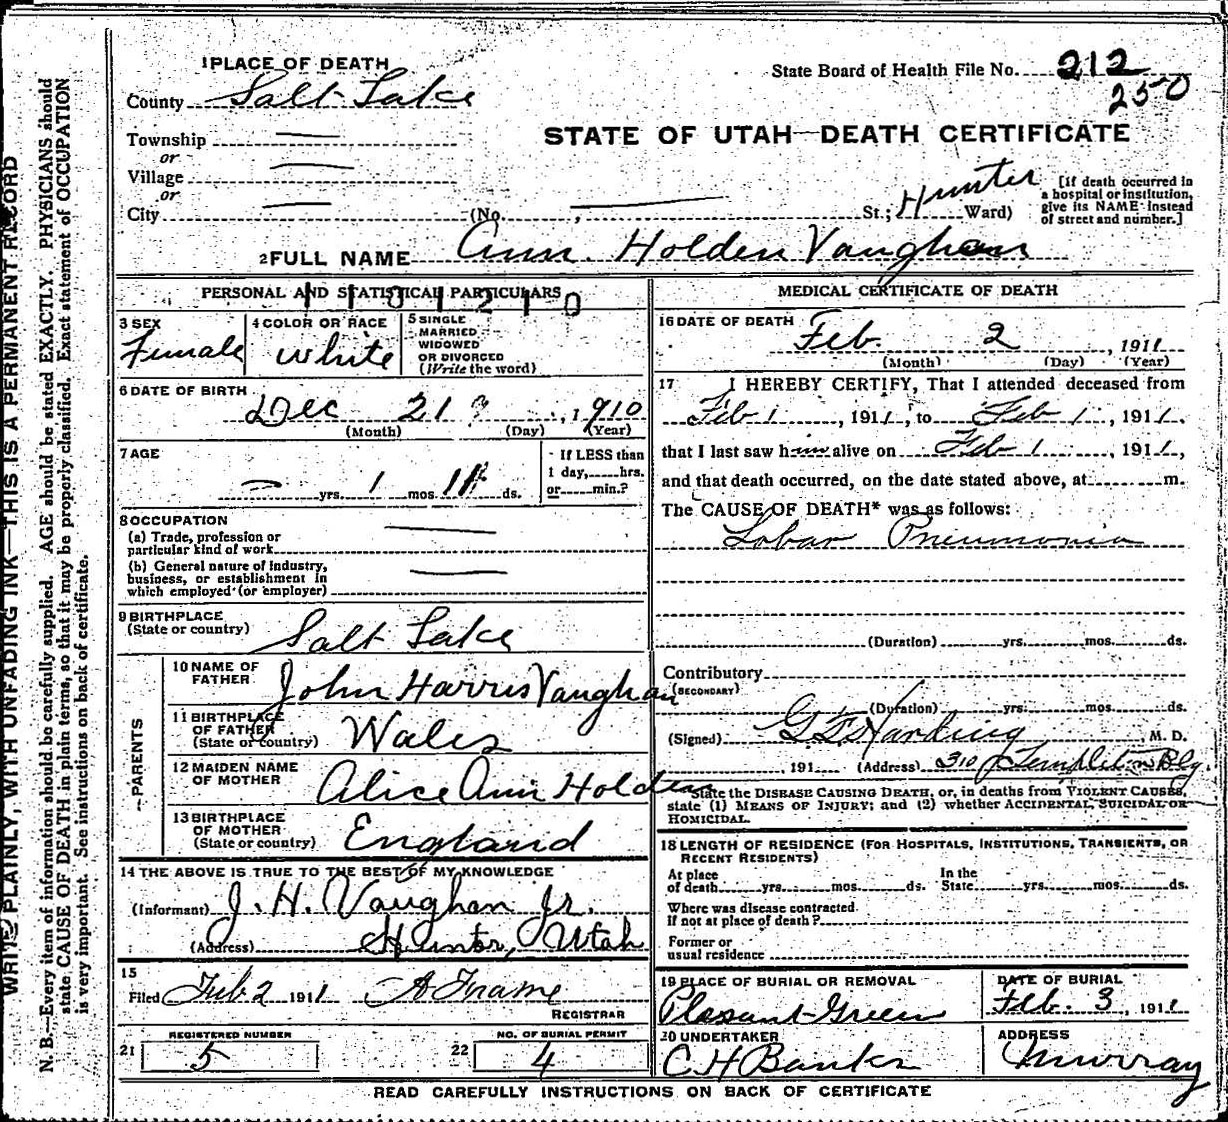 WRITE PLAINLY, WITH UNFADING INK—THIS IS A PERMANENT RECORD
N. B.—Every item of information should be carefully supplied. AGE should be stated EXACTLY. PHYSICIANS should
state CAUSE OF DEATH in plain terms, so that it may be properly classified. Exact statement of OCCUPATION
is very important. See instructions on back of certificate.
1 PLACE OF DEATH
State Board of Health File No. 212
250
County Salt Lake
STATE OF UTAH—DEATH CERTIFICATE
Township —
or
Village —
or
City — (No. , — St.; Hunter Ward)
[If death occurred in
a hospital or institution,
give its NAME instead
of street and number.]
2 FULL NAME Ann Holden Vaughan
PERSONAL AND STATISTICAL PARTICULARS
1101210
3 SEX
Female
4 COLOR OR RACE
White
5 SINGLE
MARRIED
WIDOWED
OR DIVORCED
(Write the word)
6 DATE OF BIRTH
Dec 21 ? , 1910
(Month) (Day) (Year)
7 AGE
— yrs. 1 mos. ds.
If LESS than
1 day, hrs.
or min.?
8 OCCUPATION
(a) Trade, profession or
particular kind of work —
(b) General nature of industry,
business, or establishment in
which employed (or employer) —
9 BIRTHPLACE
(State or country) Salt Lake
PARENTS
10 NAME OF
FATHER John Harris Vaughan
11 BIRTHPLACE
OF FATHER
(State or country) Wales
12 MAIDEN NAME
OF MOTHER Alice Ann Holden
13 BIRTHPLACE
OF MOTHER
(State or country) England
14 THE ABOVE IS TRUE TO THE BEST OF MY KNOWLEDGE
(Informant) J. H. Vaughan Jr.
(Address) Hunter, Utah
15
Filed Feb 2 1911
REGISTRAR
REGISTERED NUMBER
21 5
NO. OF BURIAL PERMIT
22 4
MEDICAL CERTIFICATE OF DEATH
16 DATE OF DEATH Feb. 2 , 1911
(Month) (Day) (Year)
17 I HEREBY CERTIFY, That I attended deceased from
Feb 1 , 1911, to Feb 1 , 1911,
that I last saw him alive on Feb 1 , 1911,
and that death occurred, on the date stated above, at m.
The CAUSE OF DEATH* was as follows:
Lobar Pneumonia
(Duration) yrs. mos. ds.
Contributory
(SECONDARY)
(Duration) yrs. mos. ds.
(Signed) G F Harding , M. D.
, 191 (Address) 310 Templeton Blg.
*State the DISEASE CAUSING DEATH, or, in deaths from VIOLENT CAUSES,
state (1) MEANS OF INJURY; and (2) whether ACCIDENTAL, SUICIDAL OR
HOMICIDAL.
18 LENGTH OF RESIDENCE (FOR HOSPITALS, INSTITUTIONS, TRANSIENTS, OR
RECENT RESIDENTS)
At place
of death yrs. mos. ds.
In the
State yrs. mos. ds.
Where was disease contracted
If not at place of death?
Former or
usual residence
19 PLACE OF BURIAL OR REMOVAL
Pleasant Green
DATE OF BURIAL
Feb. 3 , 1911
20 UNDERTAKER
C H Banks
ADDRESS
Murray
READ CAREFULLY INSTRUCTIONS ON BACK OF CERTIFICATE